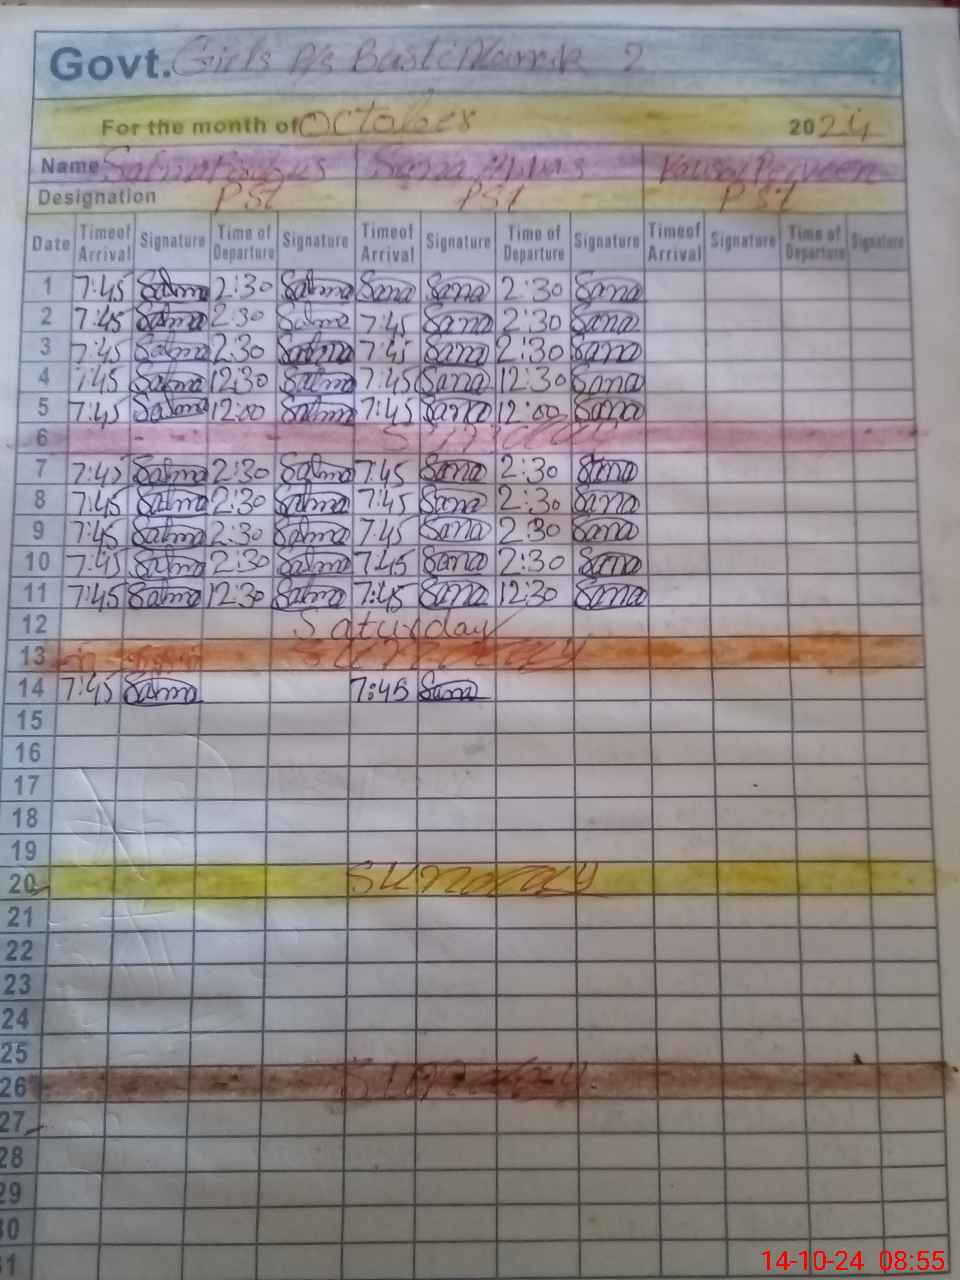 Govt. Girls P/s Basti Malook 2
For the month of October 2024
Name Salma Sana Abbas Kausar Parveen
Designation PST PST PST
Date Time of Arrival Signature Time of Departure Signature Time of Arrival Signature Time of Departure Signature Time of Arrival Signature Time of Departure Signature
1 7:45 Salma 2:30 Salma Sana Sana 2:30 Sana
2 7:45 Salma 2:30 Salma 7:45 Sana 2:30 Sana
3 7:45 Salma 2:30 Salma 7:45 Sana 2:30 Sana
4 7:45 Salma 12:30 Salma 7:45 Sana 12:30 Sana
5 7:45 Salma 12:00 Salma 7:45 Sana 12:00 Sana
6 Sunday
7 7:45 Salma 2:30 Salma 7:45 Sana 2:30 Sana
8 7:45 Salma 2:30 Salma 7:45 Sana 2:30 Sana
9 7:45 Salma 2:30 Salma 7:45 Sana 2:30 Sana
10 7:45 Salma 2:30 Salma 7:45 Sana 2:30 Sana
11 7:45 Salma 12:30 Salma 7:45 Sana 12:30 Sana
12 Saturday
13 Sunday
14 7:45 Salma 7:45 Sana
15
16
17
18
19
20 Sunday
21
22
23
24
25
26 Sunday
27
28
29
30
31
14-10-24 08:55